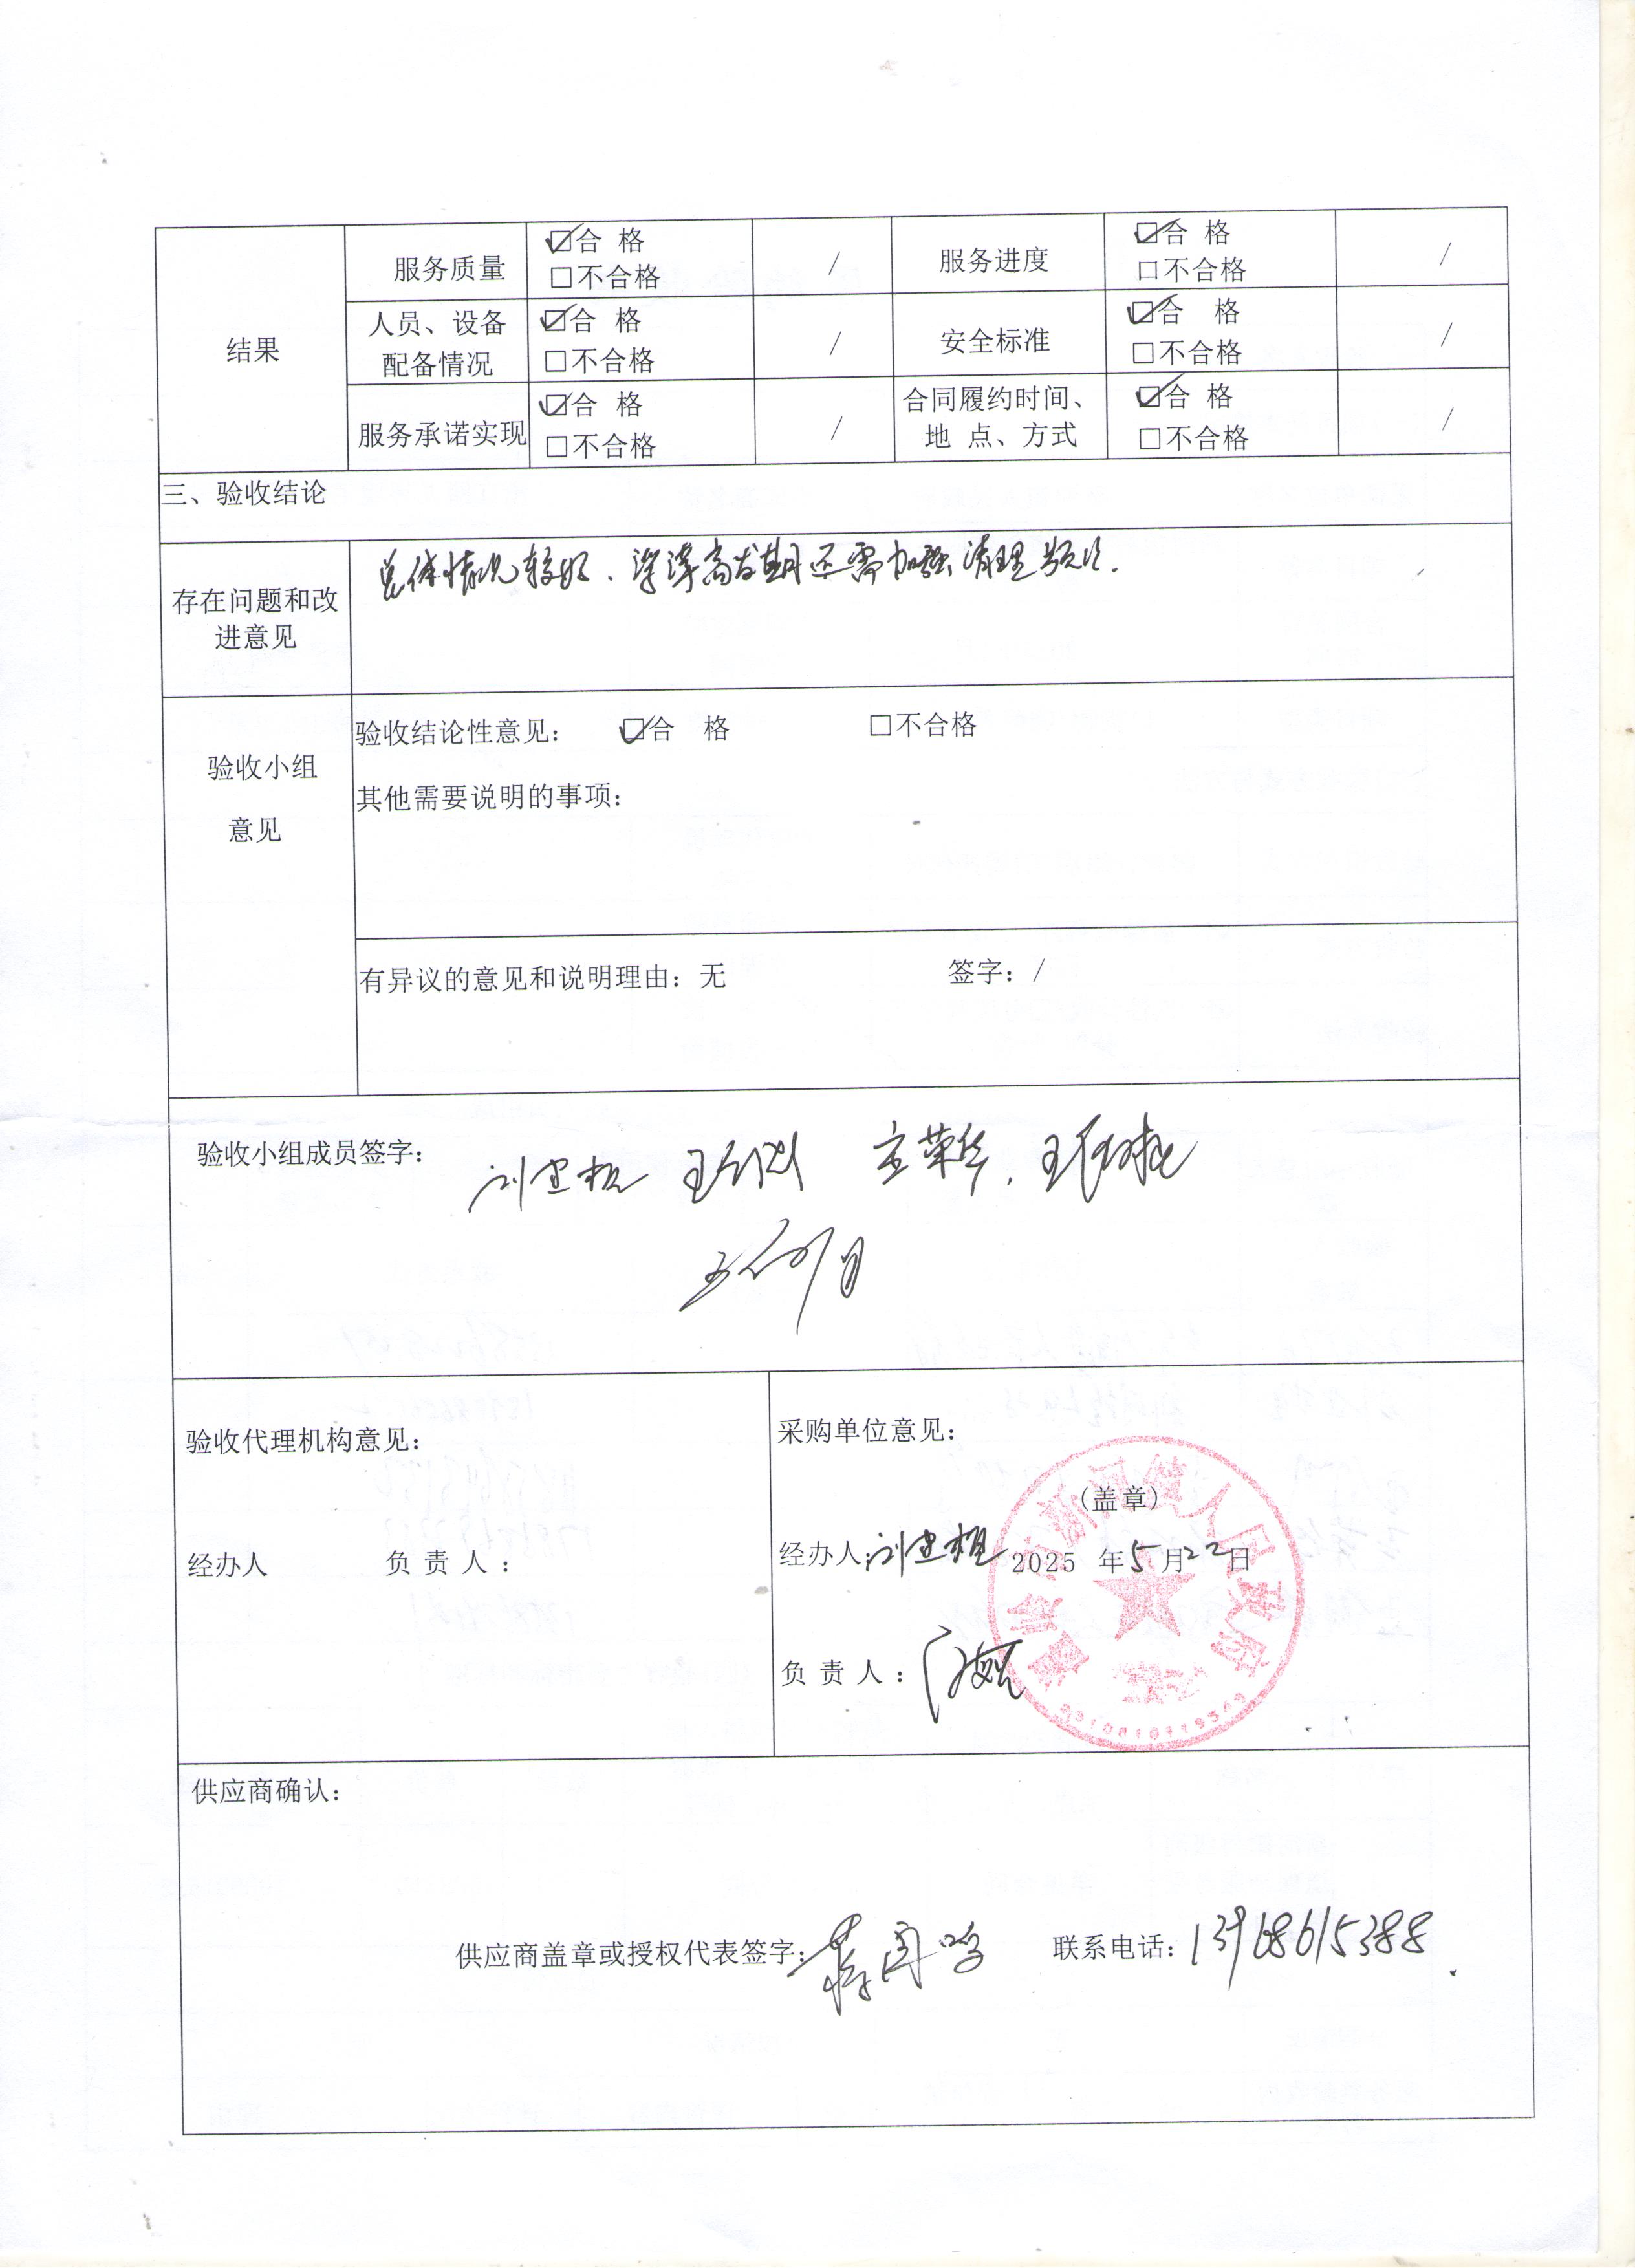 结果
服务质量 ☑合 格 / 服务进度 ☑合 格 /
□不合格 □不合格
人员、设备 ☑合 格 / 安全标准 ☑合 格 /
配备情况 □不合格 □不合格
服务承诺实现 ☑合 格 / 合同履约时间、 ☑合 格 /
□不合格 地 点、方式 □不合格
三、验收结论
存在问题和改
进意见
总体情况较好.浮萍高发期还需加强清理频次.
验收小组
意见
验收结论性意见: ☑合 格 □不合格
其他需要说明的事项:
有异议的意见和说明理由:无 签字:/
验收小组成员签字:
刘建 王 荣华. 王
验收代理机构意见:
经办人 负 责 人 :
采购单位意见:
(盖章)
经办人:刘建 2025 年5月22日
负 责 人 :
人民政府
供应商确认:
供应商盖章或授权代表签字: 联系电话:13968615388